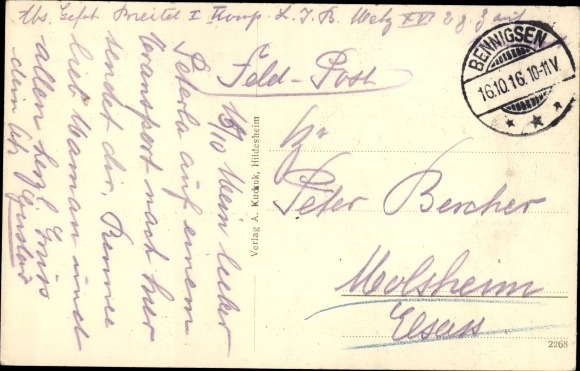 Abs. Gefr. Breitel I Komp. L. I. B. Metz XVI
Feld-Post
BENNIGSEN
16.10.16.10-11V.
16/10 Mein lieber
Peterla auf einem
Transport nach hier
sendet dir, Rennee
liet Maman und
allen herzl. Grüss
dein
Gustav
Verlag A. Kuckuk, Hildesheim
Hr
Peter Bercher
Molsheim
Elsass
2268